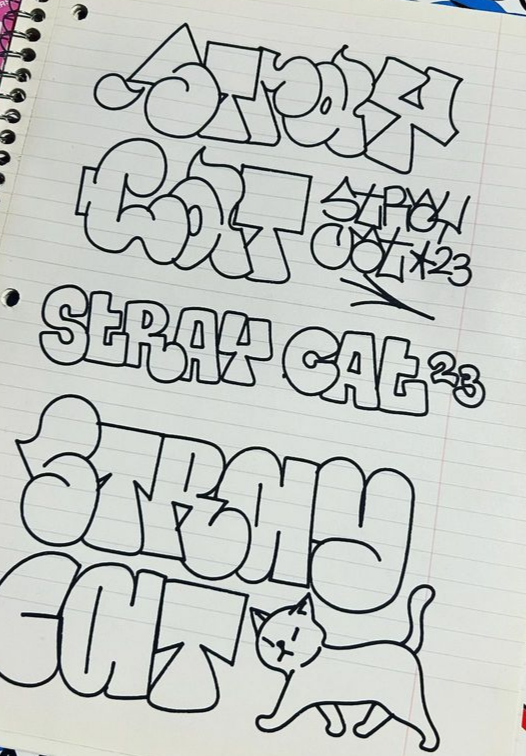 STRAY
CAT
STRAY
CAT*23
STRAY CAT 23
STRAY
CAT